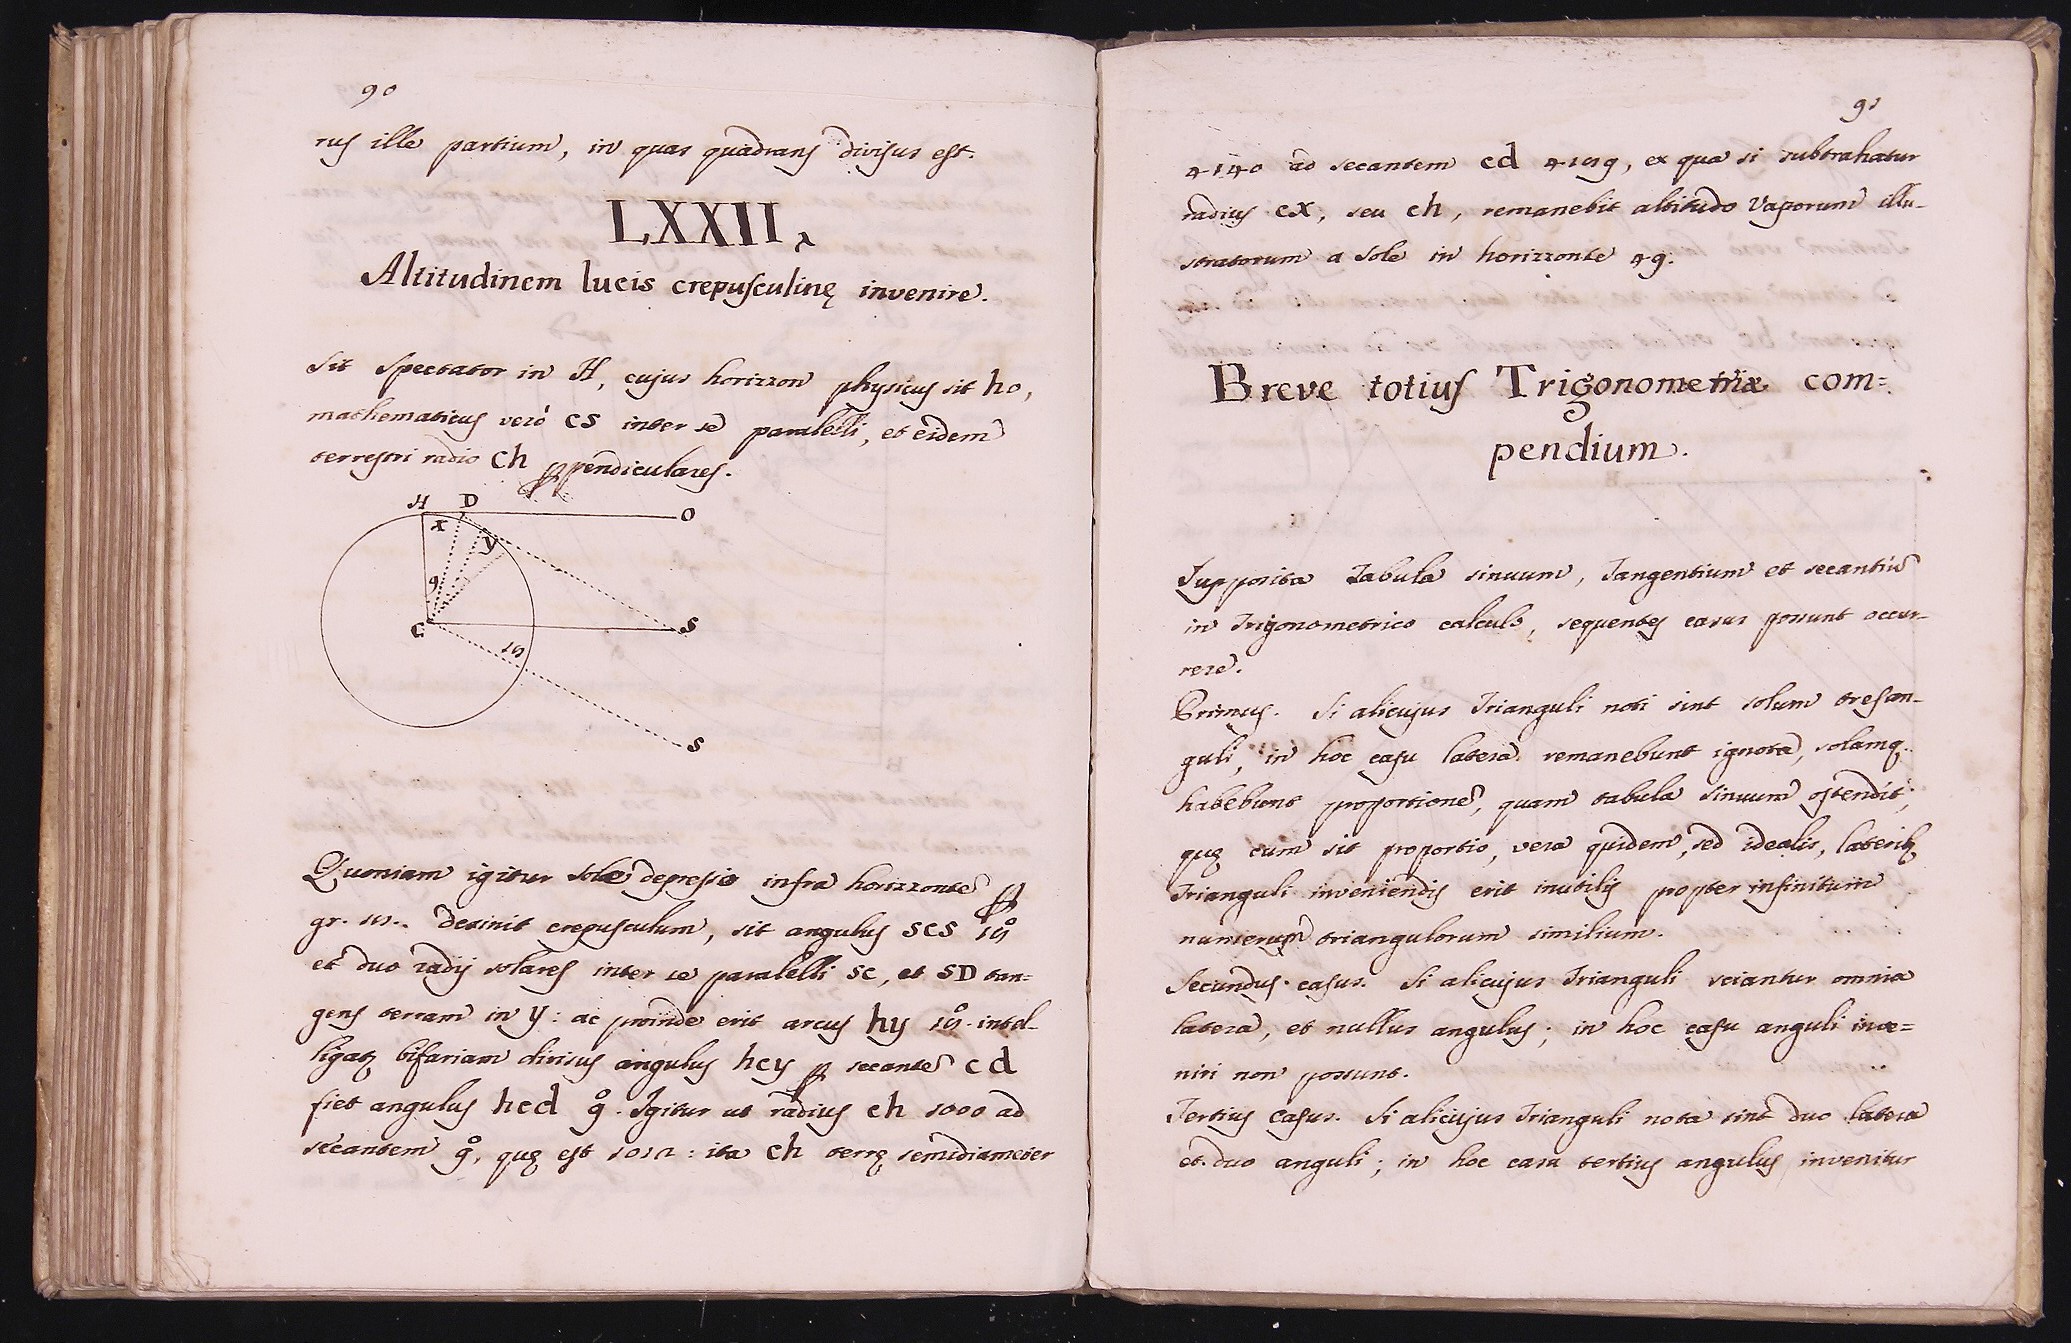 90
rus ille partium, in quas quadrans divisus est.
LXXII.
Altitudinem lucis crepusculinę invenire.
Sit Spectator in H, cujus horizzon physicus sit ho,
mathematicus verò cs inter se paralelli, et eidem
terrestri radio ch ꝑpendiculares.
H D O
X
y
9
C S
18
S
Quoniam igitur Sole depresso infra horizzontē ꝑ
gr. 18. desinit crepusculum, sit angulus scs 18°
et duo radij solares inter se paralelli sc, et SD tan=
gens terram in y: ac proinde erit arcus hy 18°. intel-
ligatꝫ bifariam divisus angulus hcy ꝑ secantē cd
fiet angulus hcd 9°. Igitur ut radius ch 1000 ad
secantem 9°, quę est 1012: ita ch terrę semidiameter
91
4140 ad secantem cd 4189, ex qua si subtrahatur
radius cx, seu ch, remanebit altitudo vaporum illu-
stratorum a sole in horizzonte 49.
Breve totius Trigonometriæ com=
pendium.
Supposita Tabula sinuum, Tangentium et secantiū
in Trigonometrico calculo, sequentes casus possunt occur-
rere.
Primus. Si alicujus Trianguli noti sint solum tres an-
guli, in hoc casu latera remanebunt ignota, solamq.
habebunt proportionē, quam tabula sinuum ostendit;
quę cum sit proportio, vera quidem, sed idealis, lateribꝫ
Trianguli inveniendis erit inutilis propter infinitum
numerum triangulorum similium.
Secundus casus. Si alicujus Trianguli sciantur omnia
latera, et nullus angulus; in hoc casu anguli inve=
niri non possunt.
Tertius Casus. Si alicujus Trianguli nota sint duo latera
et duo anguli; in hoc casu tertius angulus invenitur